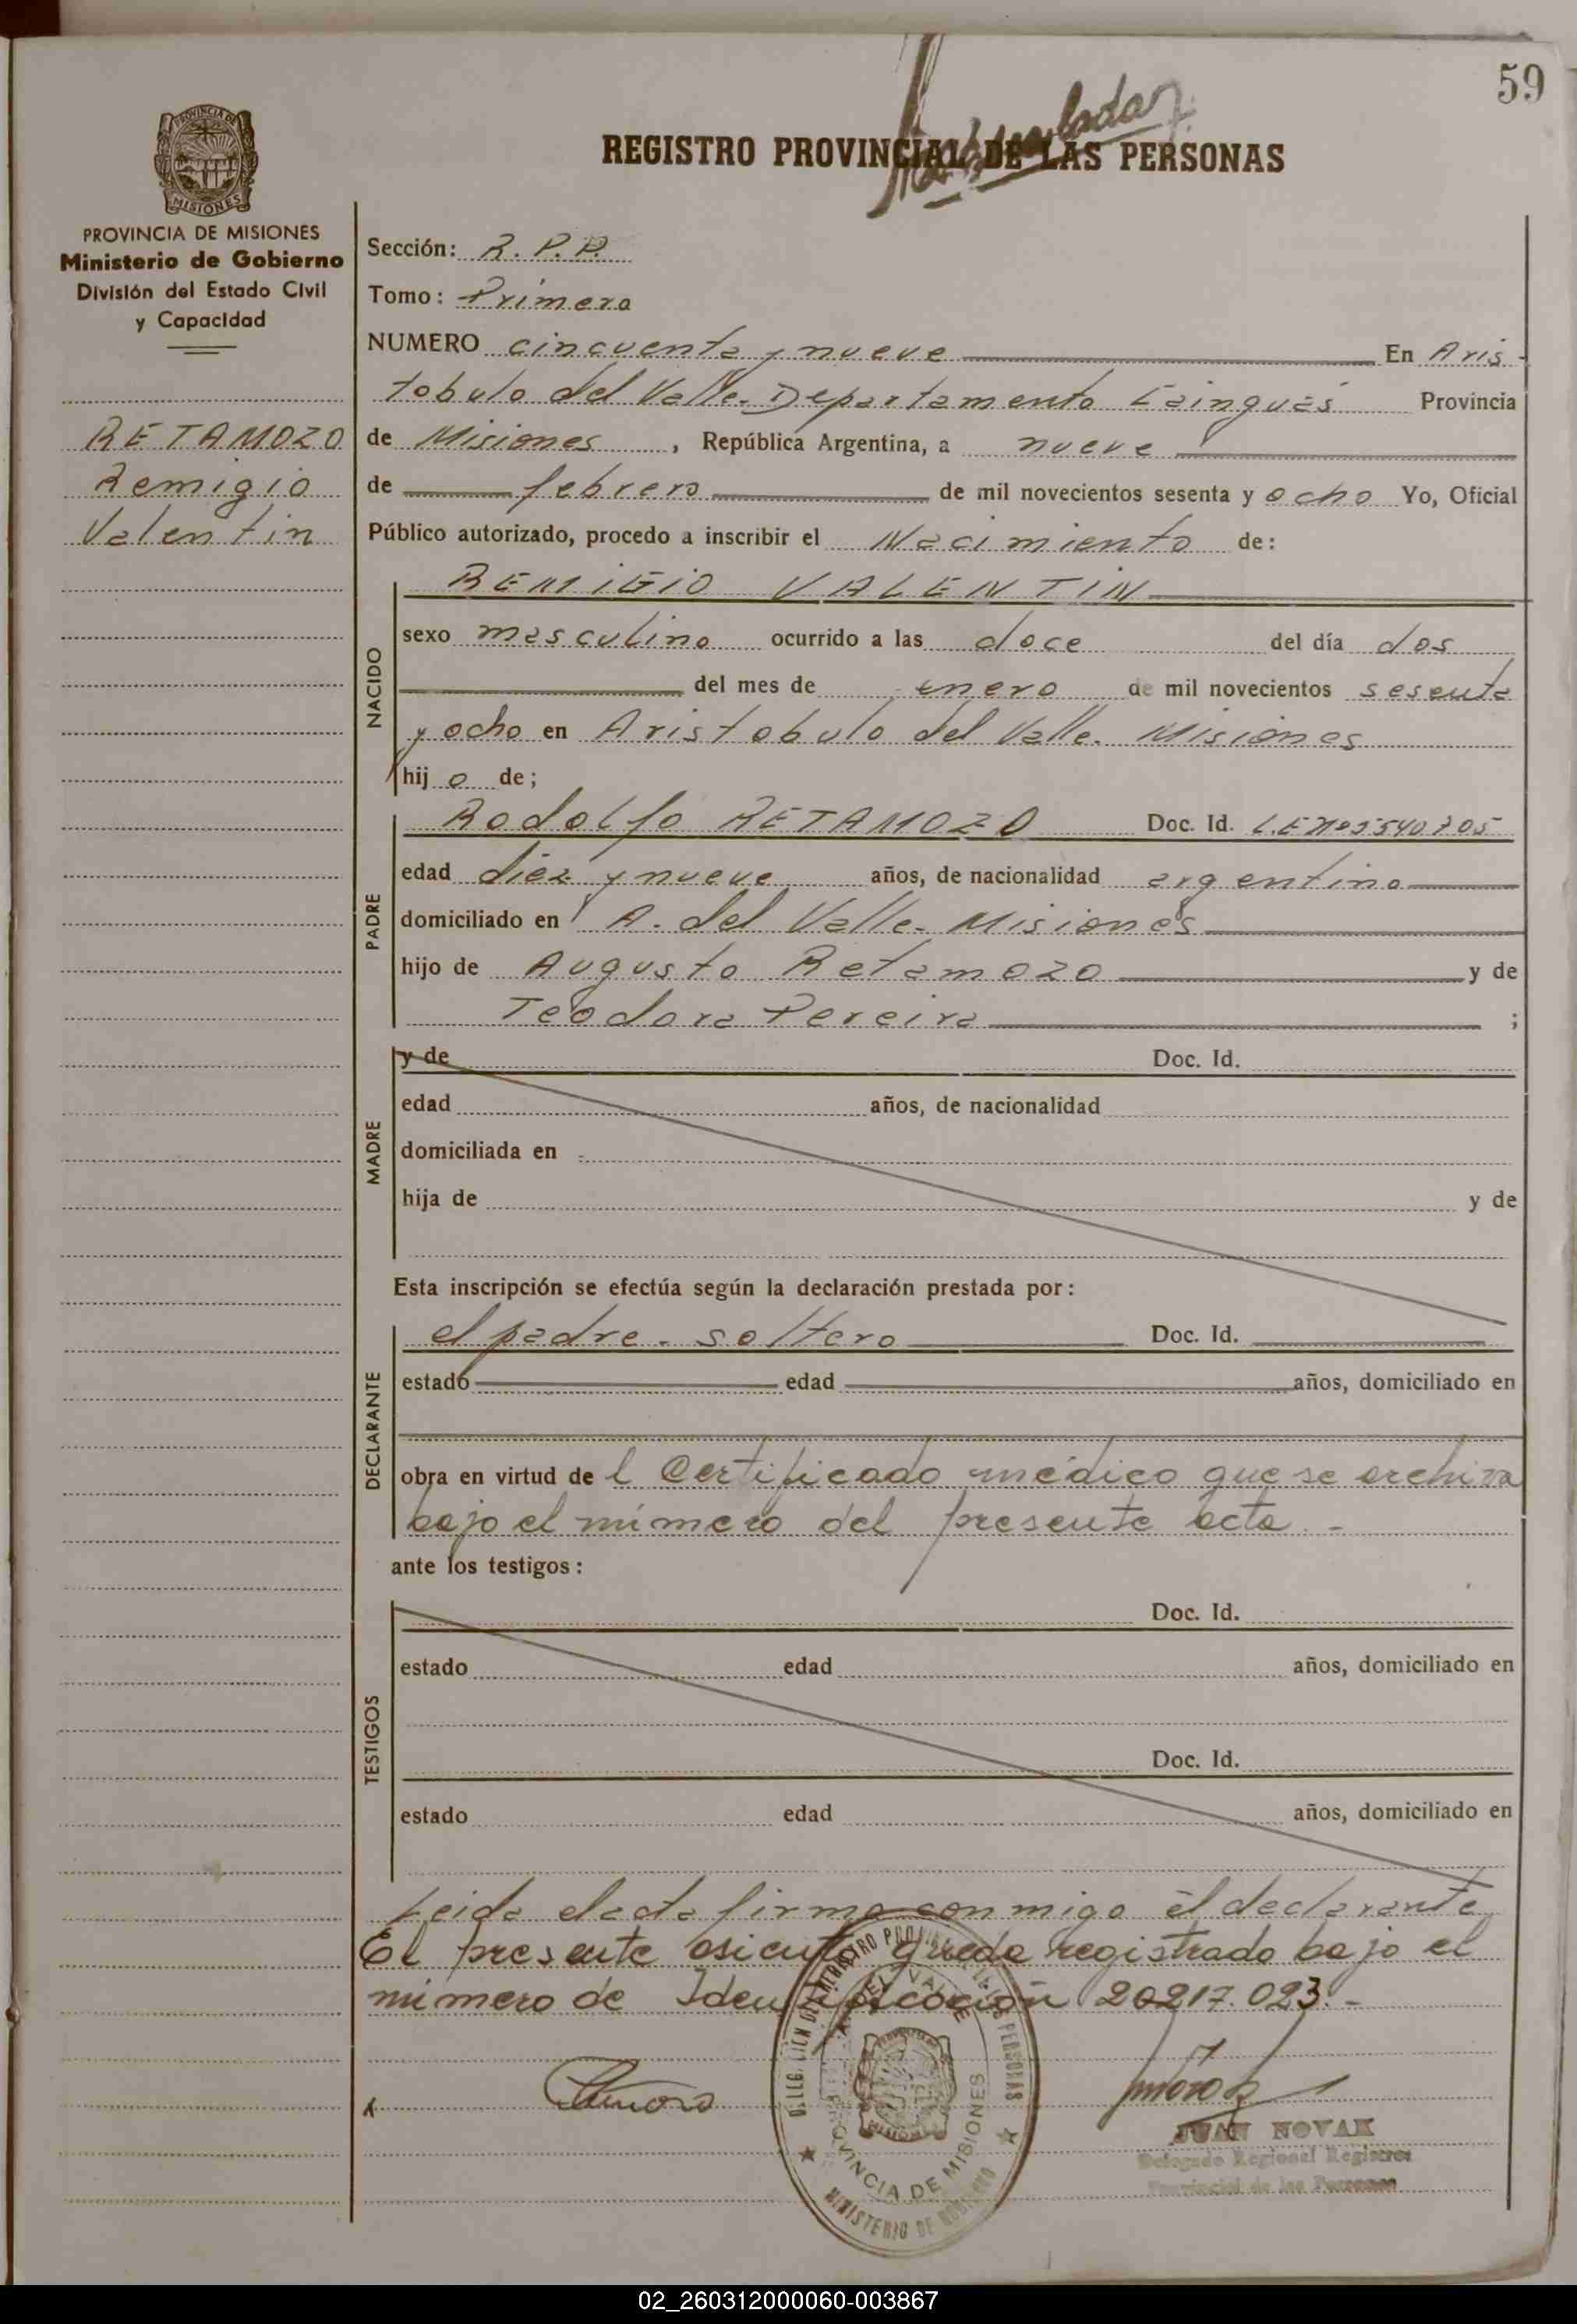 59
REGISTRO PROVINCIAL DE LAS PERSONAS
PROVINCIA DE MISIONES
Ministerio de Gobierno
División del Estado Civil
y Capacidad
RETAMOZO
Remigio
Valentin
Sección: R. P. P.
Tomo: Primero
NUMERO cincuenta y nueve En Aris-
tobulo del Valle. Departamento Cainguás Provincia
de Misiones, República Argentina, a nueve
de febrero de mil novecientos sesenta y ocho Yo, Oficial
Público autorizado, procedo a inscribir el Nacimiento de:
NACIDO
REMIGIO VALENTIN
sexo masculino ocurrido a las doce del día dos
del mes de enero de mil novecientos sesenta
y ocho en Aristobulo del Valle. Misiones
hijo de;
PADRE
Rodolfo RETAMOZO Doc. Id. L.E Nº 5540705
edad diez y nueve años, de nacionalidad argentina
domiciliado en A. del Valle. Misiones
hijo de Augusto Retamozo y de
Teodora Pereira ;
MADRE
y de Doc. Id.
edad años, de nacionalidad
domiciliada en
hija de y de
Esta inscripción se efectúa según la declaración prestada por:
DECLARANTE
el padre. soltero Doc. Id.
estado edad años, domiciliado en
obra en virtud del Certificado médico que se archiva
bajo el número del presente acta.-
ante los testigos:
TESTIGOS
Doc. Id.
estado edad años, domiciliado en
Doc. Id.
estado edad años, domiciliado en
Leida el acta firma conmigo el declarante
El presente asiento queda registrado bajo el
número de Identificación 20217.023.-
PROVINCIA DE MISIONES
MINISTERIO DE GOBIERNO
JUAN NOVAK
Delegado Regional Registro
Provincial de las Personas
02_260312000060-003867